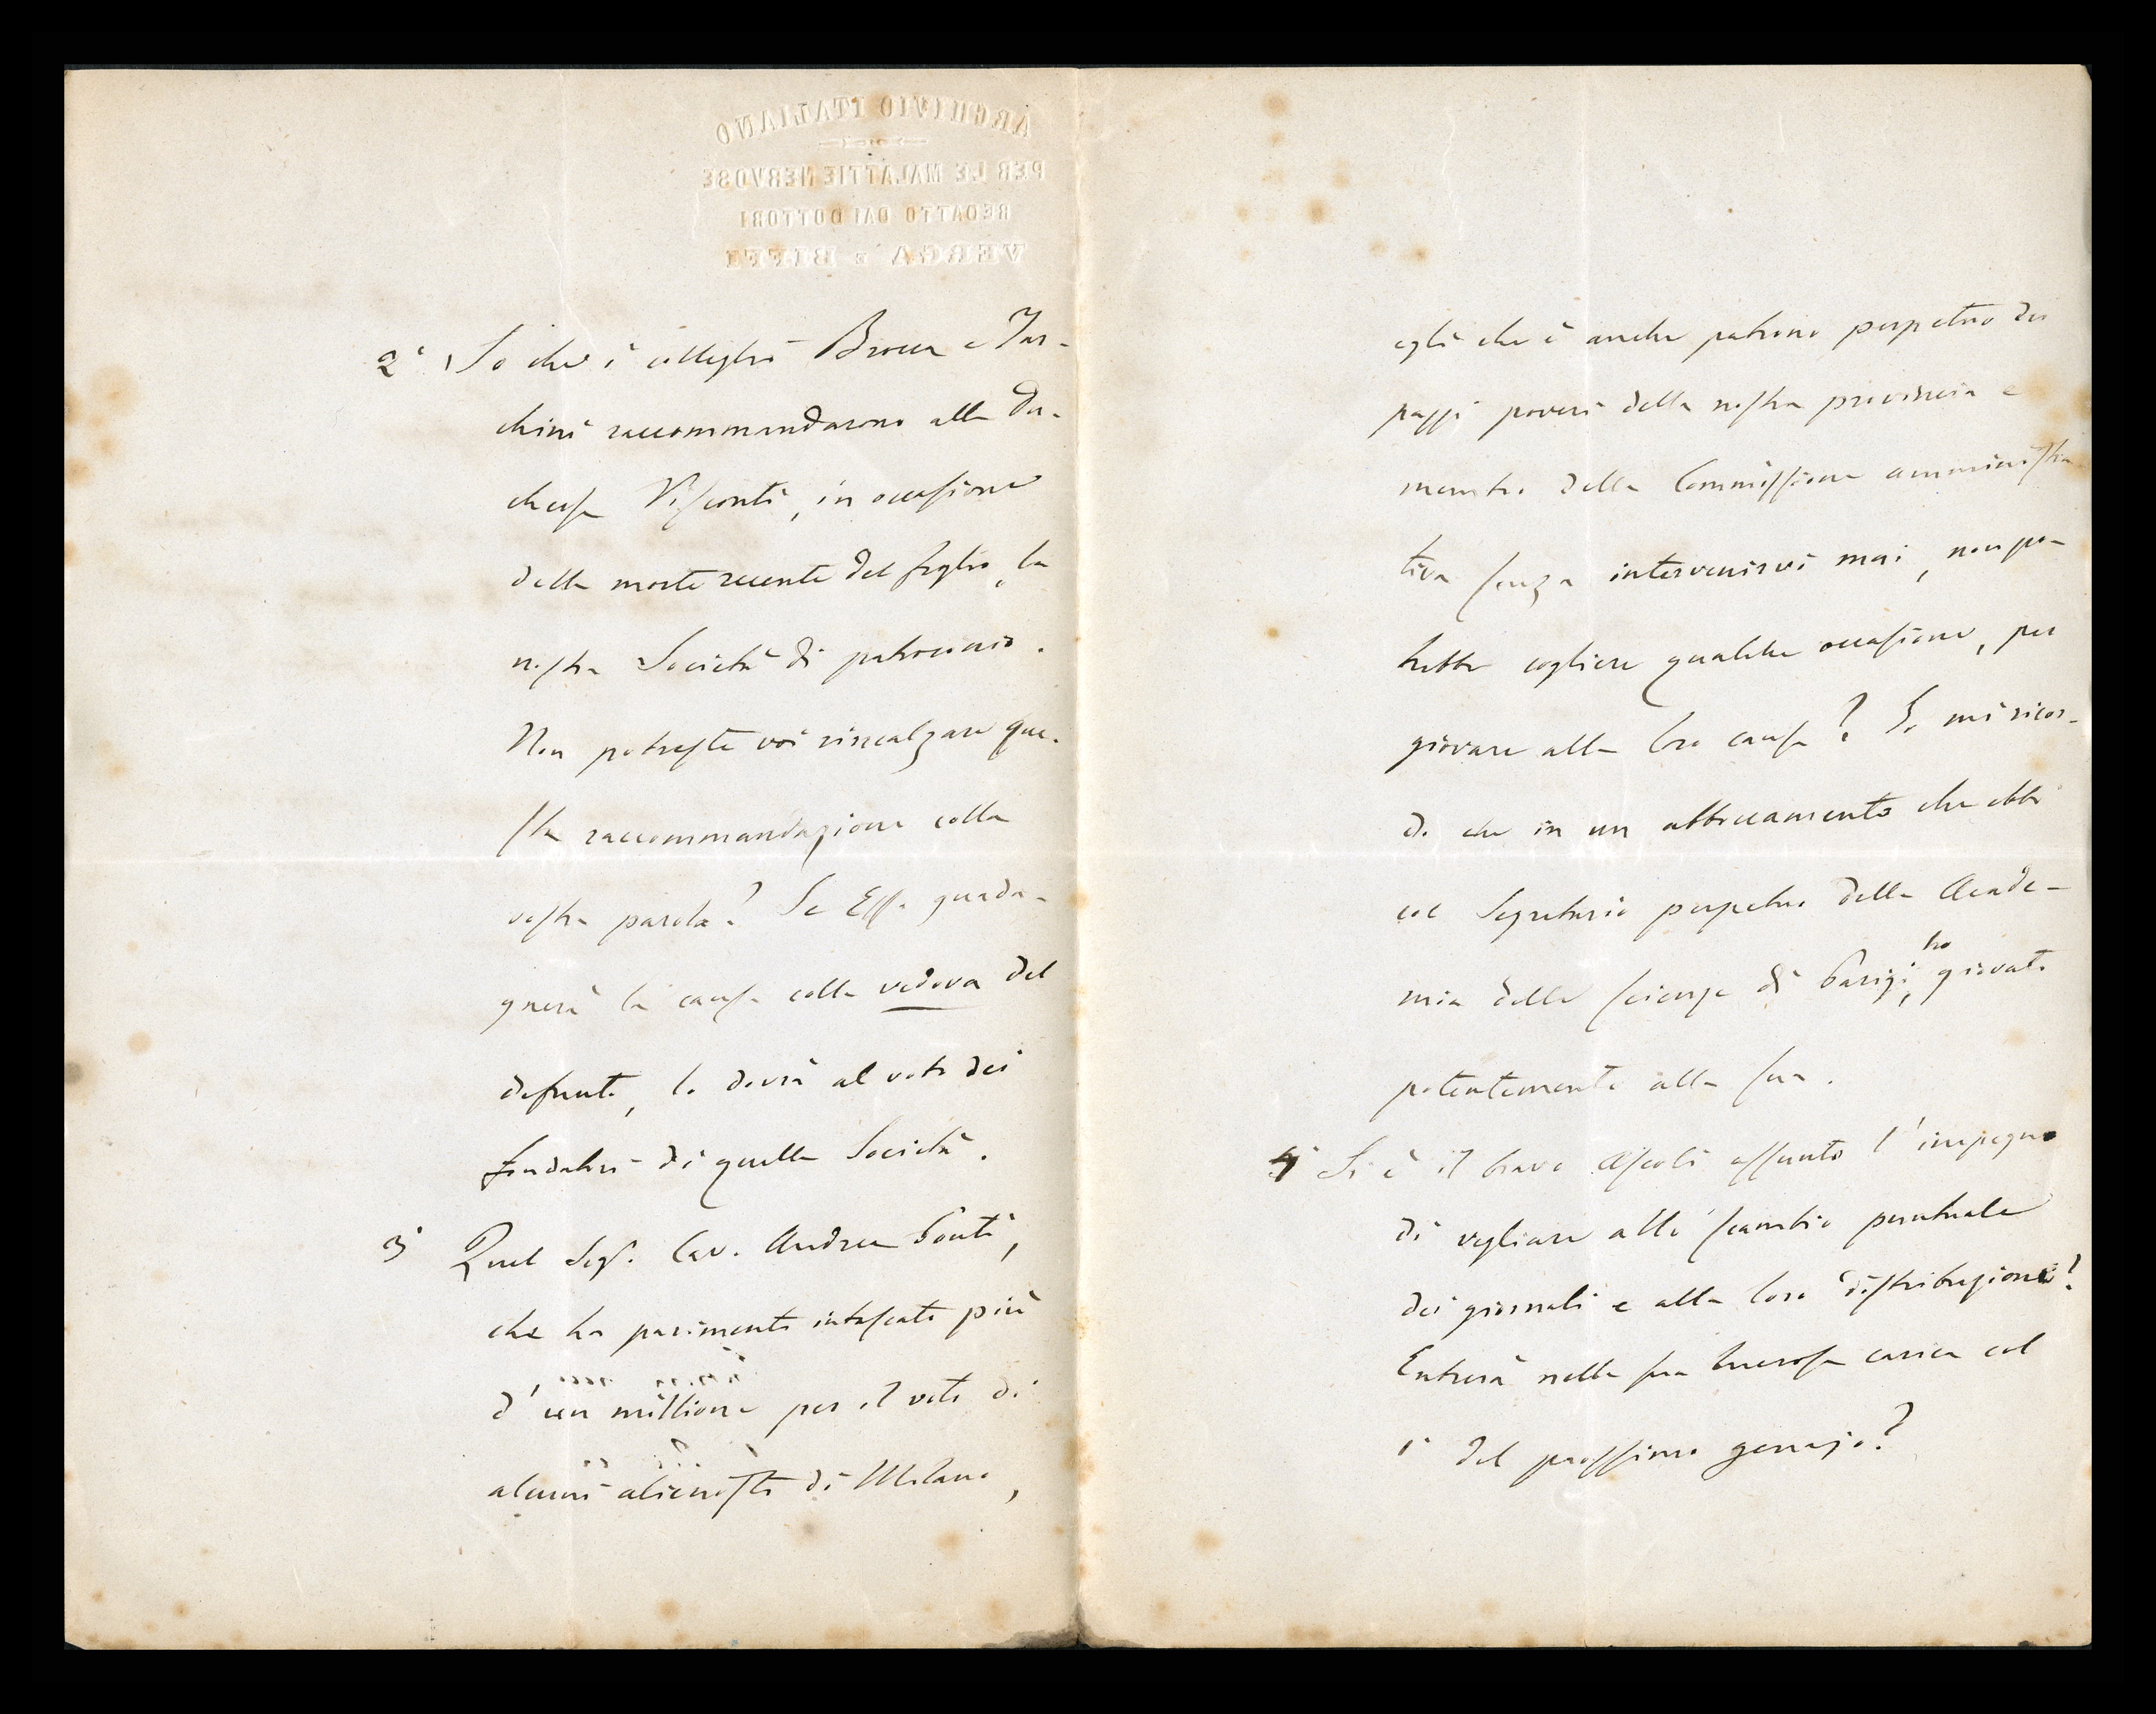 ARCHIVIO ITALIANO
PER LE MALATTIE NERVOSE
REDATTO DAI DOTTORI
VERGA E BIFFI
2° So che i colleghi Brocca e Tar-
chini raccommandarono alla Du-
chessa Visconti, in occasione
della morte recente del figlio, la
nostra Società di patrocinio.
Non potreste voi rincalzare que-
sta raccommandazione colla
vostra parola? Se Essa guada-
gnerà la causa colla vedova del
defunto, lo dovrà al voto dei
fondatori di quella Società.
3° Quel Sigr. Cav. Andrea Ponti,
che ha parimenti intascato più
d'un millione per il voto di
alcuni alienisti di Milano,
egli che è anche patrono perpetuo dei
pazzi poveri della nostra provincia e
membro della Commissione amministra
tiva senza intervenirvi mai, non po-
trebbe cogliere qualche occasione, per
giovare alla loro causa? Io mi ricor-
do che in un abboccamento che ebbi
col Segretario perpetuo della Acade-
mia delle scienze di Parigi, ho giovato
potentemente alla sua.
4° Si è il bravo Ascoli assunto l'impegno
di vegliare allo scambio puntuale
dei giornali e alla loro distribuzione?
Entrerà nella sua lucrosa carica col
1° del prossimo gennajo?